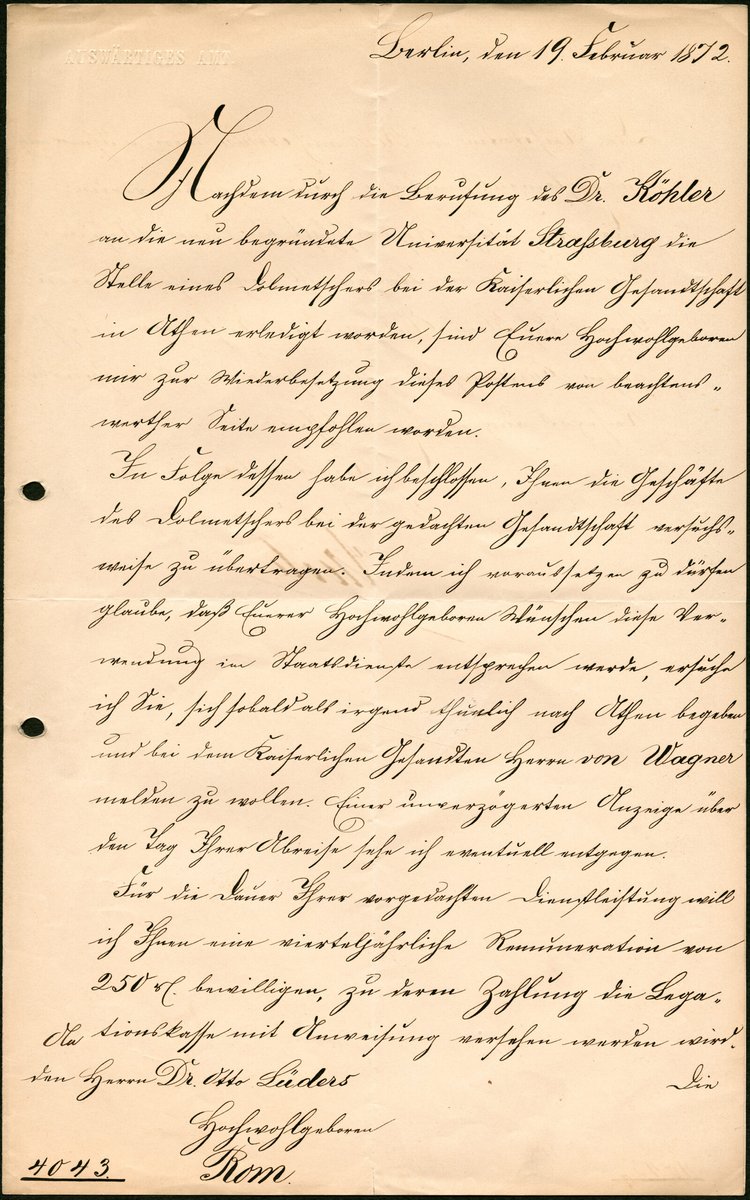 AUSWÄRTIGES AMT.
Berlin, den 19. Februar 1872.
Nachdem durch die Berufung des Dr. Köhler
an die neu begründete Universität Straßburg die
Stelle eines Dolmetschers bei der Kaiserlichen Gesandtschaft
in Athen erledigt worden, sind Euere Hochwohlgeboren
mir zur Wiederbesetzung dieses Postens von beachtens-
werther Seite empfohlen worden.
In Folge dessen habe ich beschlossen, Ihnen die Geschäfte
des Dolmetschers bei der gedachten Gesandtschaft versuchs-
weise zu übertragen. Indem ich voraussetzen zu dürfen
glaube, daß Euerer Hochwohlgeboren Wünschen diese Ver-
wendung im Staatsdienste entsprechen werde, ersuche
ich Sie, sich sobald als irgend thunlich nach Athen begeben
und bei dem Kaiserlichen Gesandten Herrn von Wagner
melden zu wollen. Einer unverzögerten Anzeige über
den Tag Ihrer Abreise sehe ich eventuell entgegen.
Für die Dauer Ihrer vorgedachten Dienstleistung will
ich Ihnen eine vierteljährliche Remuneration von
250 rℓ. bewilligen, zu deren Zahlung die Lega-
tionskasse mit Anweisung versehen werden wird.
Die
An
den Herrn Dr. Otto Lüders
Hochwohlgeboren
Rom.
4043.